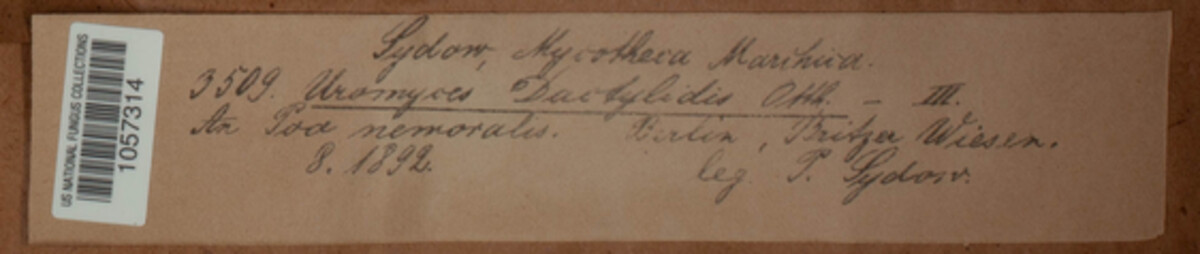 US NATIONAL FUNGUS COLLECTIONS
1057314
Sydow, Mycotheca Marchica.
3509. Uromyces Dactylidis Otth. – III.
An Poa nemoralis. Berlin, Britzer Wiesen.
8. 1892. leg. P. Sydow.